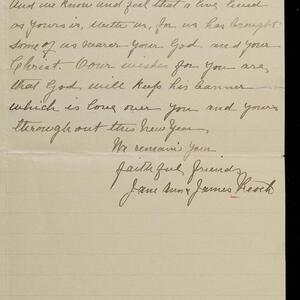 And we know and feel that a live lived
as yours is, with us, for us has brought
some of us nearer your God and your
Christ. Our wishes for you are,
that God will keep his banner
which is love over you and yours
throughout this New Year,
We remain your
faithful friends
Jane Ann & James Keoch